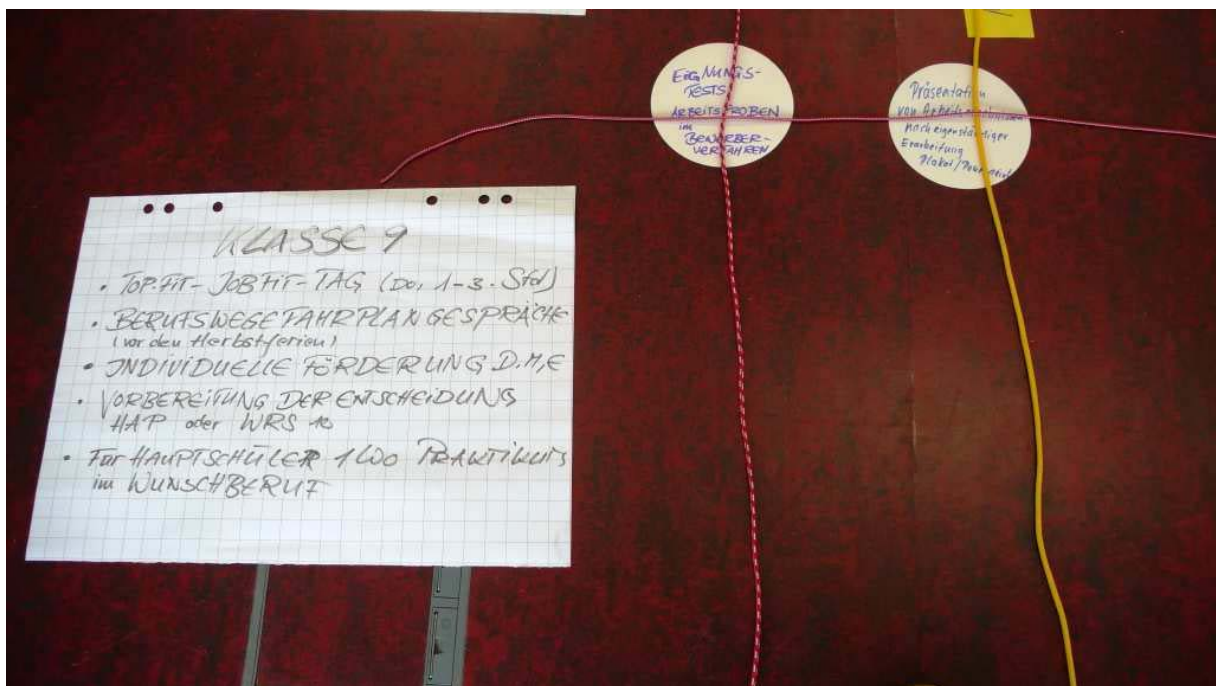 KLASSE 9
• TOP.FIT-JOBFIT-TAG (Do, 1-3. Std)
• BERUFSWEGEFAHRPLANGESPRÄCHE
(vor den Herbstferien)
• INDIVIDUELLE FÖRDERUNG D,M,E
• VORBEREITUNG DER ENTSCHEIDUNG
HAP oder WRS 10
• Für HAUPTSCHÜLER 1 WO PRAKTIKUM
im WUNSCHBERUF
EIGNUNGS-
TESTS
ARBEITSPROBEN
im
BEWERBER-
VERFAHREN
Präsentation
von
nach eigenständiger
Erarbeitung
Plakat/